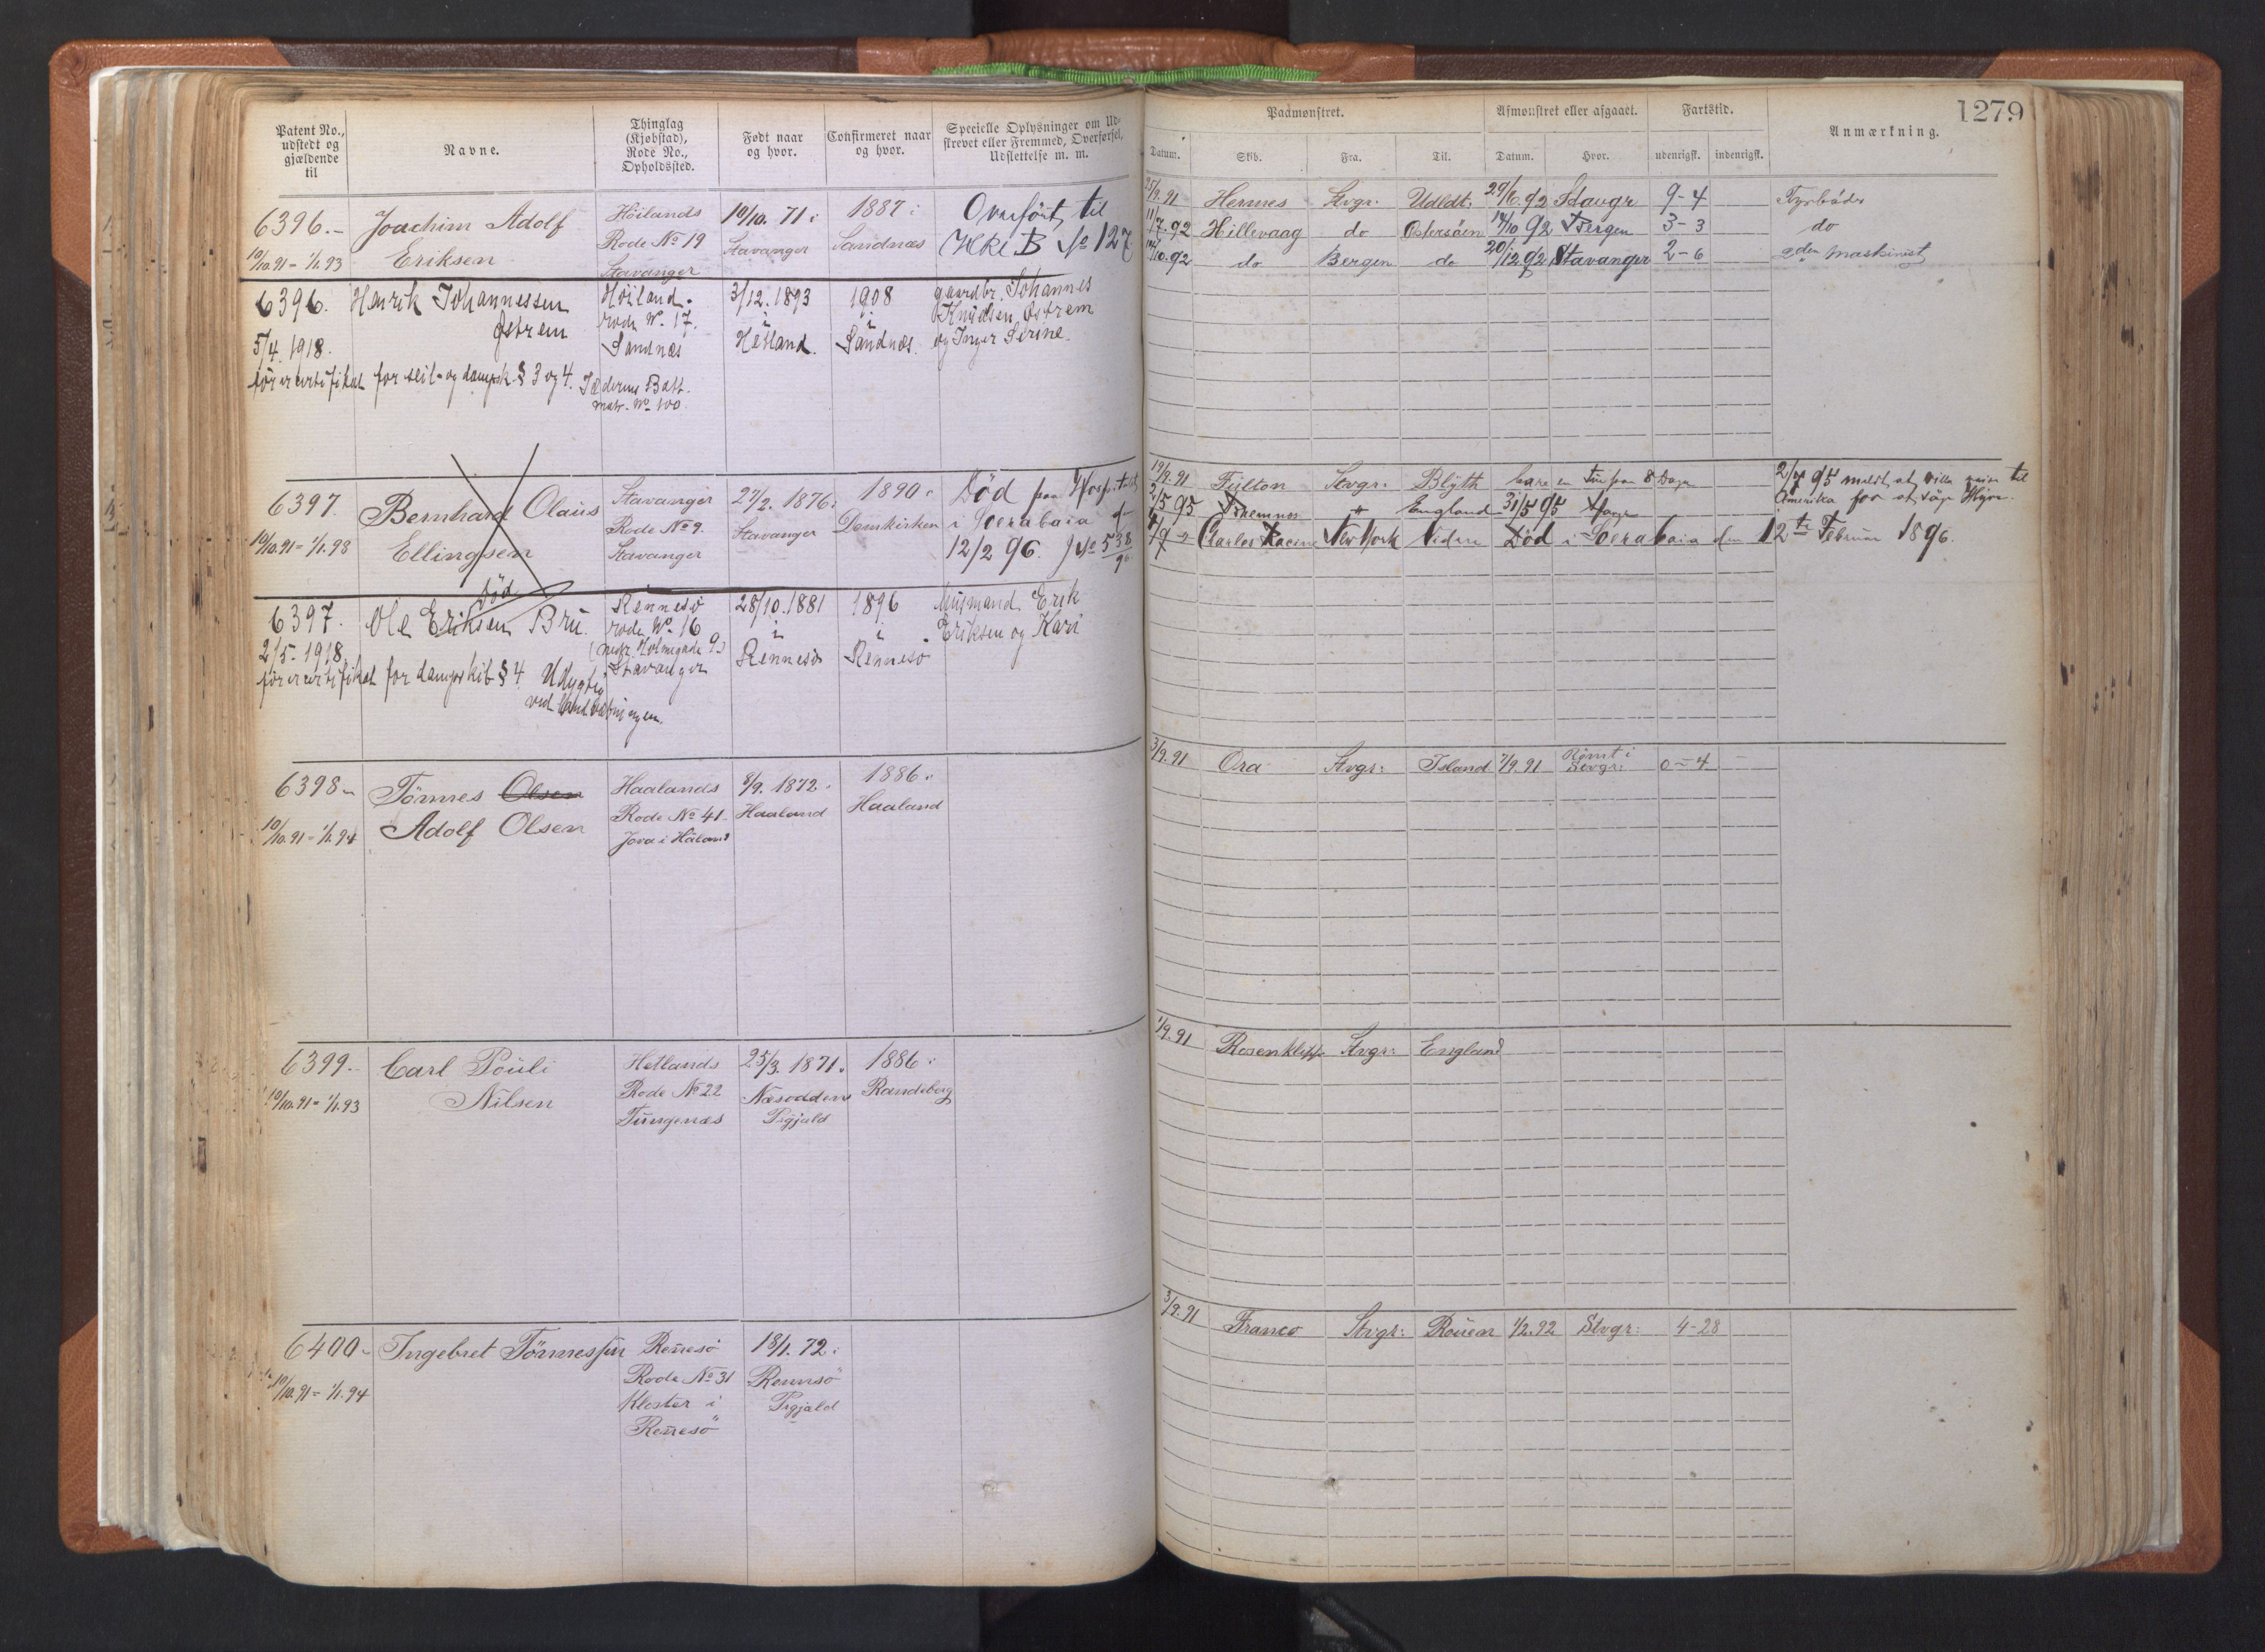 1279
Patent No., udstedt og gjældende til
Navne.
Thinglag (Kjøbstad), Rode No., Opholdssted.
Født naar og hvor.
Confirmeret naar og hvor.
Specielle Oplysninger om Udstrevet eller Fremmed, Overførsel, Udslettelse m. m.
Paamønstret.
Afmønstret eller afgaaet.
Fartstid.
Anmærkning.
Datum. Skib. Fra. Til. Datum. Hvor. udenrigsk. indenrigsk.
6396.- Joachim Adolf Høilands 10/10. 71 i 1887 i Overført til
Eriksen Rode No 19 Stavanger Sandnæs No 127
10/10.91 = 1/1.93 Stavanger
25/9.91 Hermes Stvgr: Udldt. 29/6.92 Stavgr 9-4 Fyrbøder
11/7.92 Hillevaag do Østersøen 14/10 92 Bergen 3-3 do
14/10.92 do Bergen do 20/12 92 Stavanger 2-6 2den Maskinist
6396. Henrik Johannessen Høiland. 3/12.1893 1908 gaardbr. Johannes
Østrem rode No. 17. i i Knudsen Østrem
5/4.1918. Sandnæs Hetland. Sandnæs. og Inger Serine.
førercertifikat for seil- og dampsk. § 3 og 4. Jæderens Batt.
matr. No. 100.
6397. Bernhard Olaus Stavanger 27/2. 1876. 1890 i Død paa Hospitalet
Ellingsen Rode No 9. Stavanger Domkirken i Soerabaia
10/10.91 = 1/1.98 Stavanger 12/2 96. J No 538
19/9.91 Fulton Stvgr: Blyth bare en tur paa 8 Dage 2/5 95 meldt at ville reise til
2/5 95 England 31/5 95 Amerika for at søge Hyre.
Charles Racine New York Død i Soerabaia den 12te Februar 1896.
Død
6397. Ole Eriksen Bru. Rennesø 28/10.1881 1896 Husmand Erik
rode No. 16 i i Eriksen og Kari
2/5-1918 Holmegade 9. Rennesø Rennesø
førercertifikat for dampskib § 4 Stavanger
Udygtig
ved landsætningen.
6398- Tönnes Olsen Haalands 8/9. 1872. 1886 i
Adolf Olsen Rode No 41. Haaland Haaland
10/10.91 = 1/1.94 i Håland
3/9.91 Ora Stvgr: Island 7/9.91 Rømt i Stvgr: 0-4
6399.- Carl Pouli Hetlands 25/3. 1871. 1886 i
Nilsen Rode No 22 Næsoddens Randeberg
10/10.91 = 1/1.93 Tungenæs Prgjæld
1/9.91 Rosenkilde Stvgr: England
6400- Ingebret Tönnessen Rennesö 18/1. 72.
Rode No 31 Rennsö
10/10.91 = 1/1.94 Kloster i Prgjæld
Rennesö
3/9.91 Franco Stvgr: Rouen 1/2.92 Stvgr: 4-28